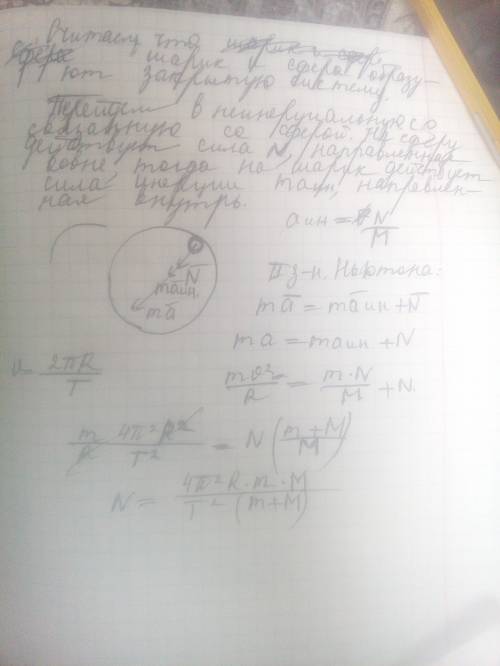 Считаем, что шарик и сфер
сфера шарик и сфера образу-
ют закрытую систему.
Перейдем в неинерциальную со
связанную со сферой. На сферу
действует сила N, направленная
вовне, тогда на шарик действует
сила инерции maин, направлен-
ная внутрь.
aин = N/M
N̄
māин.
mā
II з-н. Ньютона:
mā = māин + N̄
ma = maин + N
v = 2πR/T
m v²/R = m·N/M + N
m/R 4π²R²/T² = N (m+M/M)
N = 4π²R·m·M/T²(m+M)